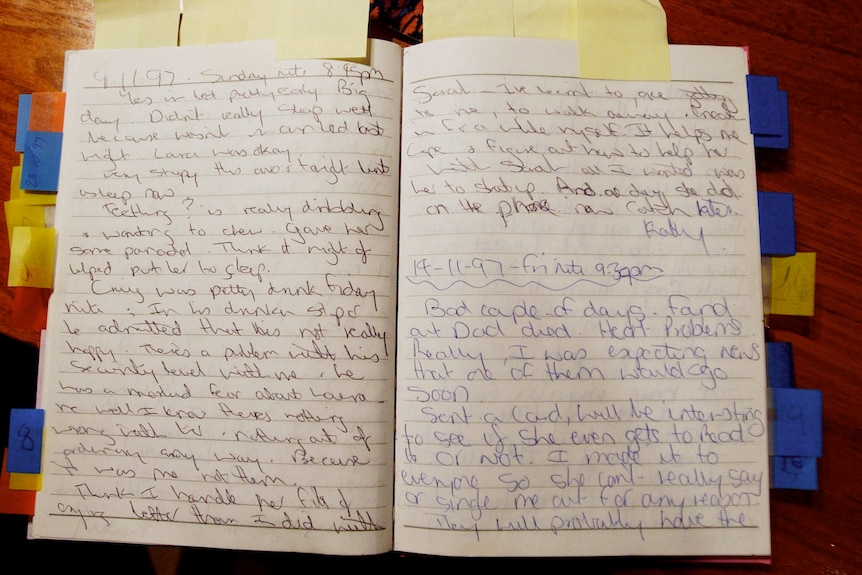 9.11.97. Sunday nite 8.45pm
Yes in bed pretty early Big
day Didn't really sleep well
because wasn't in own bed last
night Laura was okay.
very sleepy this one tonight
asleep now
Teething? is really dribbling
& wanting to chew. Gave her
some panadol. Think it might of
helped put her to sleep.
Craig was pretty drunk Friday
nite. In his drunken
he admitted that he's not really
happy. There's a problem with his
Security level with me. he
has a marked fear about Laura
me well I know theres nothing
wrong with her. nothing out of
ordinary any way. Because
it was me not them.
Think I handle her fits of
crying better than I did with
Sarah - I've learnt to, are
to me, to walk away.
in for a while myself. It helps me
cope & figure out how to help her
With Sarah all I wanted was
her to shut up. And one day she did.
on the phone now catch later.
Kathy.
14-11-97 - Fri nite 9.30pm
Bad couple of days. Found
out Dad died. Heart Problems.
Really, I was expecting news
that one of them would go
soon
Sent a Card, will be interesting
to see if she even gets to Read
it or not. I made it to
everyone so she can't really say
or single me out for any reason.
They will probably have the
8
9